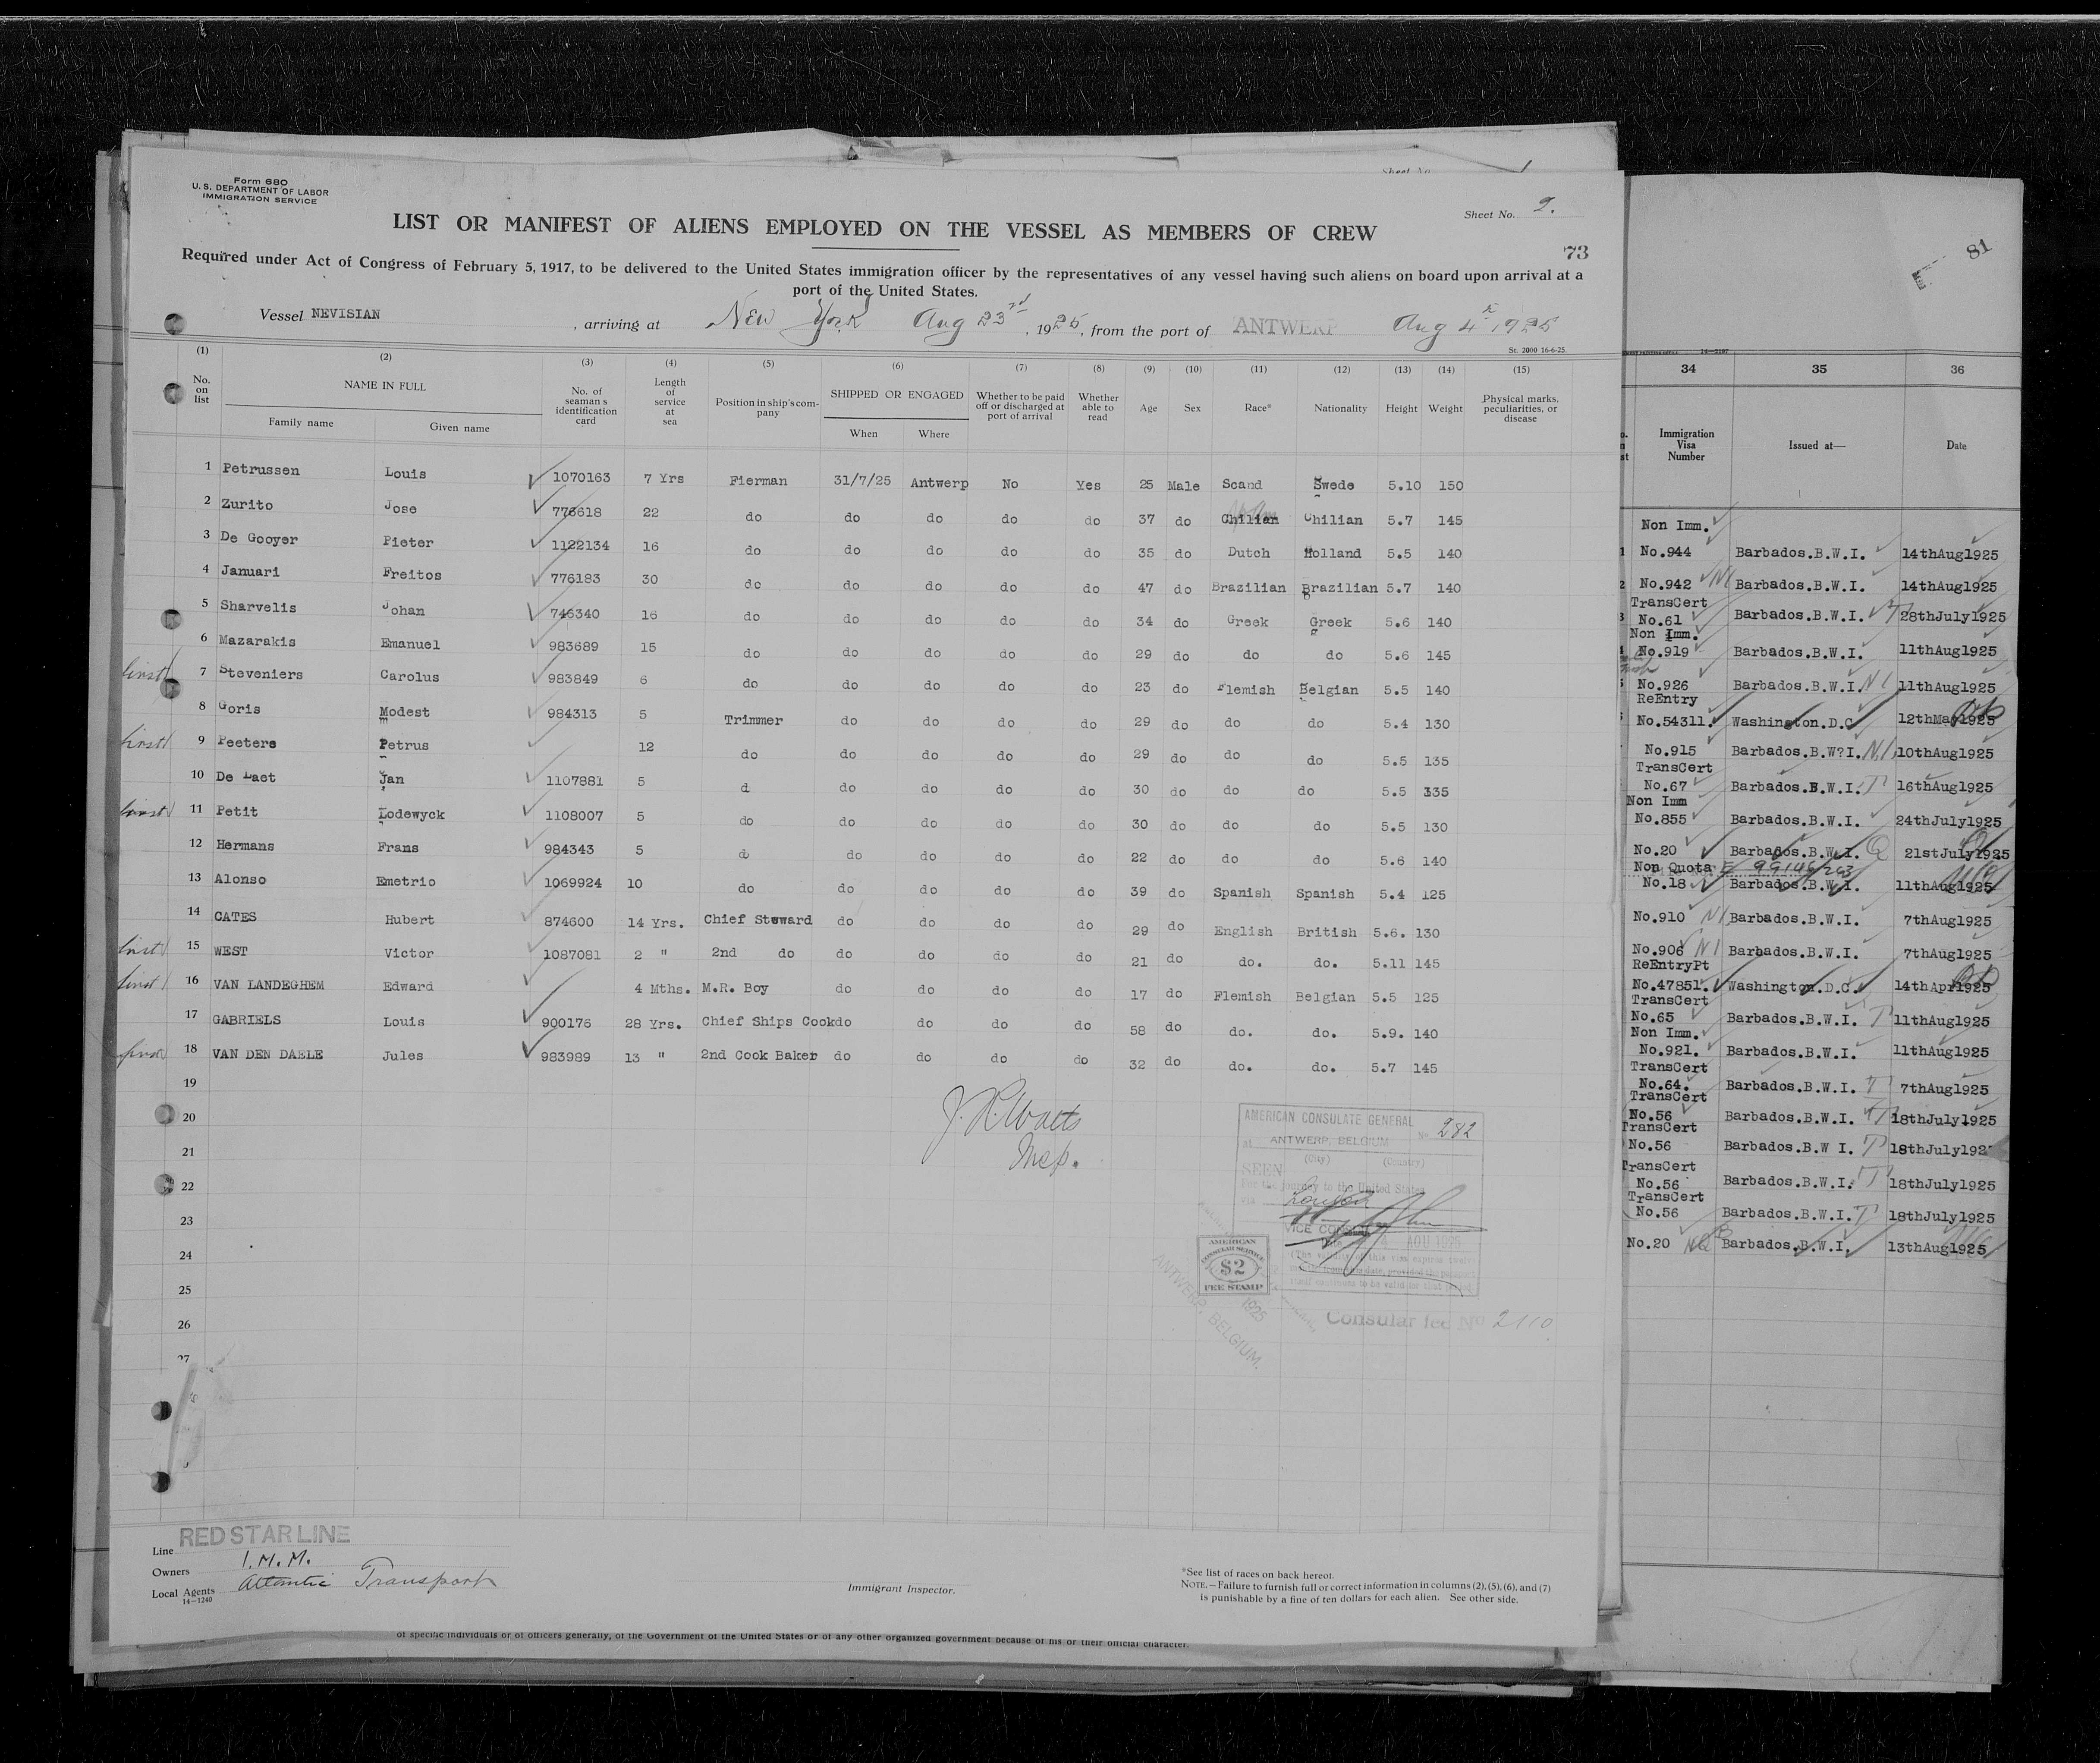 Sheet No.
Form 680
U. S. DEPARTMENT OF LABOR
IMMIGRATION SERVICE
Sheet No. 2.
LIST OR MANIFEST OF ALIENS EMPLOYED ON THE VESSEL AS MEMBERS OF CREW
73
Required under Act of Congress of February 5, 1917, to be delivered to the United States immigration officer by the representatives of any vessel having such aliens on board upon arrival at a
port of the United States.
Vessel NEVISIAN , arriving at New York Aug 23rd , 1925, from the port of ANTWERP Aug 4th 1925
St. 2000 16-6-25
(1) (2) (3) (4) (5) (6) (7) (8) (9) (10) (11) (12) (13) (14) (15)
No. on list NAME IN FULL Family name Given name No. of seaman s identification card Length of service at sea Position in ship's company SHIPPED OR ENGAGED When Where Whether to be paid off or discharged at port of arrival Whether able to read Age Sex Race* Nationality Height Weight Physical marks, peculiarities, or disease
1 Petrussen Louis 1070163 7 Yrs Fierman 31/7/25 Antwerp No Yes 25 Male Scand Swede 5.10 150
2 Zurito Jose 776618 22 do do do do do 37 do Chilian Chilian 5.7 145
3 De Gooyer Pieter 1122134 16 do do do do do 35 do Dutch Holland 5.5 140
4 Januari Freitos 776183 30 do do do do do 47 do Brazilian Brazilian 5.7 140
5 Sharvelis Johan 746340 16 do do do do do 34 do Greek Greek 5.6 140
6 Mazarakis Emanuel 983689 15 do do do do do 29 do do do 5.6 145
first 7 Steveniers Carolus 983849 6 do do do do do 23 do Flemish Belgian 5.5 140
8 Goris Modest 984313 5 Trimmer do do do do 29 do do do 5.4 130
first 9 Peeters Petrus 12 do do do do do 29 do do do 5.5 135
10 De Laet Jan 1107881 5 d do do do do 30 do do do 5.5 135
first 11 Petit Lodewyck 1108007 5 do do do do do 30 do do do 5.5 130
12 Hermans Frans 984343 5 do do do do do 22 do do do 5.6 140
13 Alonso Emetrio 1069924 10 do do do do do 39 do Spanish Spanish 5.4 125
14 CATES Hubert 874600 14 Yrs. Chief Steward do do do do 29 do English British 5.6. 130
first 15 WEST Victor 1087081 2 " 2nd do do do do do 21 do do. do. 5.11 145
first 16 VAN LANDEGHEM Edward 4 Mths. M.R. Boy do do do do 17 do Flemish Belgian 5.5 125
17 GABRIELS Louis 900176 28 Yrs. Chief Ships Cook do do do do 58 do do. do. 5.9. 140
first 18 VAN DEN DAELE Jules 983989 13 " 2nd Cook Baker do do do do 32 do do. do. 5.7 145
19
20
21
22
23
24
25
26
27
J. R. Watts
Insp.
AMERICAN CONSULATE GENERAL
AT ANTWERP, BELGIUM No 282
(City) (Country)
SEEN
For the journey to the United States
via
VICE CONSUL
AOU 1925
AMERICAN
CONSULAR SERVICE
$2
FEE STAMP
1925
ANTWERP, BELGIUM.
Consular fee No 2110
RED STAR LINE
Line
Owners I.M.M.
Local Agents Atlantic Transport
14-1240
Immigrant Inspector.
*See list of races on back hereof.
NOTE.—Failure to furnish full or correct information in columns (2), (5), (6), and (7)
is punishable by a fine of ten dollars for each alien. See other side.
of specific individuals or of officers generally, of the Government of the United States or of any other organized government because of his or their official character.
81
34 35 36
Immigration Visa Number Issued at— Date
Non Imm.
1 No.944 Barbados.B.W.I. 14thAug1925
2 No.942 NI Barbados.B.W.I. 14thAug1925
TransCert
3 No.61 Barbados.B.W.I. T 28thJuly1925
Non Imm.
No.919 Barbados.B.W.I. 11thAug1925
No.926 Barbados.B.W.I. NI 11thAug1925
ReEntry
No.54311. Washington.D.C 12thMay1925
No.915 Barbados.B.W?I. NI 10thAug1925
TransCert
No.67 Barbados.B.W.I. T 16thAug1925
Non Imm
No.855 Barbados.B.W.I. 24thJuly1925
No.20 Barbados.B.W.I. Q 21stJuly1925
Non Quota
No.18 Barbados.B.W.I. 11thAug1925
No.910 NI Barbados.B.W.I. 7thAug1925
No.906 NI Barbados.B.W.I. 7thAug1925
ReEntryPt
No.47851. Washington.D.C. 14thApr1925
TransCert
No.65 Barbados.B.W.I. T 11thAug1925
Non Imm.
No.921. Barbados.B.W.I. 11thAug1925
TransCert
No.64. Barbados.B.W.I. T 7thAug1925
TransCert
No.56 Barbados.B.W.I. T 18thJuly1925
TransCert
No.56 Barbados.B.W I. T 18thJuly192
TransCert
No.56 Barbados.B.W.I. T 18thJuly1925
TransCert
No.56 Barbados.B.W.I. T 18thJuly1925
No.20 NQ Barbados.B.W.I. 13thAug1925